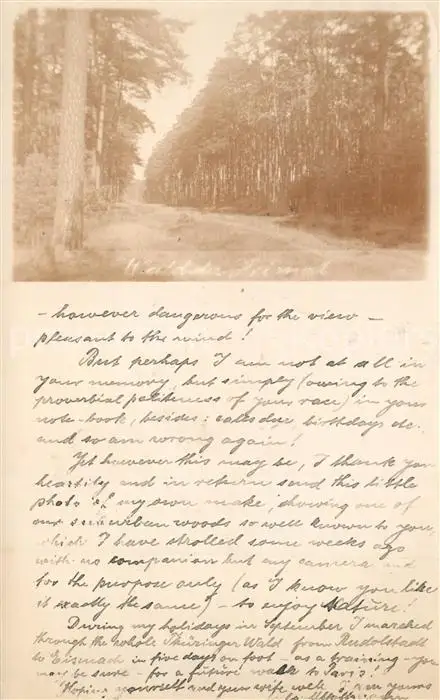 Wald der Heimat
- however dangerous for the view -
pleasant to the mind!
But perhaps I am not at all in
your memory, but simply (owing to the
proverbial politeness of your race) in your
note-book, besides: calesdue, birthdays etc.
and so am wrong again!
Yet however this may be, I thank you
heartily and in return send this little
photo of my own make, showing one of
our suburban woods so well known to you,
which I have strolled some weeks ago
with no companion but my camera and
for the purpose only (as I know you like
it exactly the same) - to enjoy Nature!
During my holidays in September I marched
through the whole Thüringer Wald from Rudolstadt
to Eisenach in five days on foot - as a training - you
may be sure - for a future walk to Paris!
Hoping yourself and your wife well, I am yours